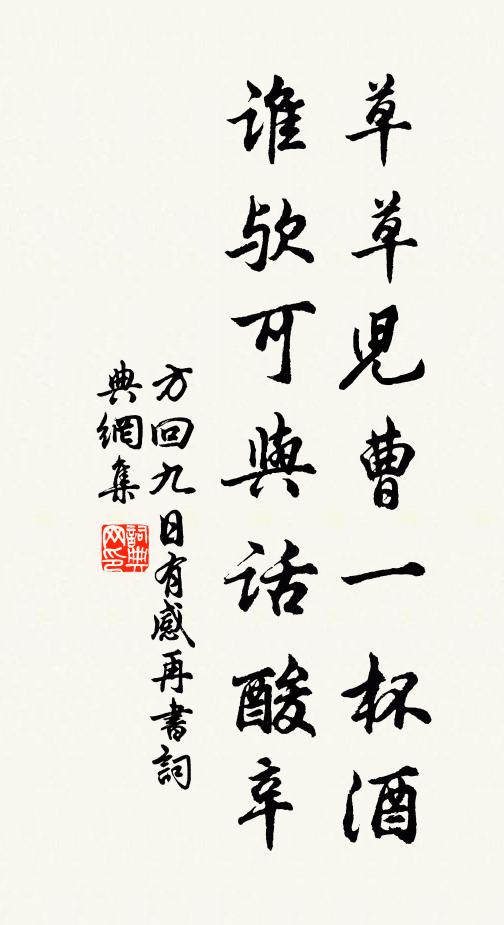 草草兒曹一杯酒
谁欤可與话酸辛
方回九日有感再書詞
典網集
詞典
网印